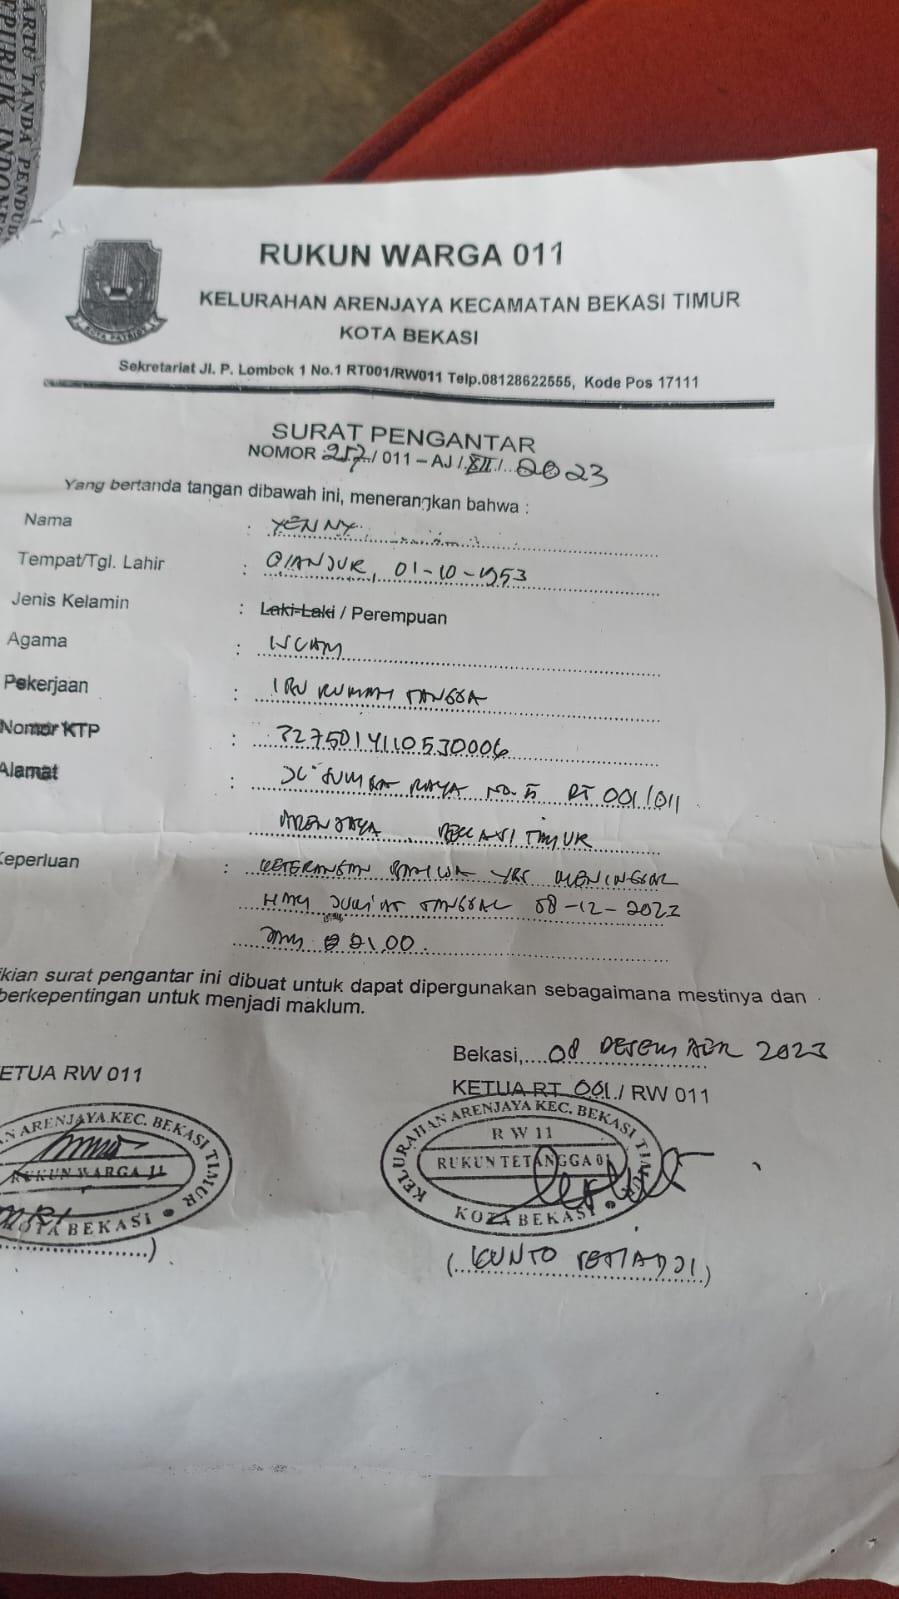 KARTU TANDA PENDUD
EPUBLIK INDONES
RUKUN WARGA 011
KELURAHAN ARENJAYA KECAMATAN BEKASI TIMUR
KOTA BEKASI
KOTA PATRIOT
Sekretariat Jl. P. Lombok 1 No.1 RT001/RW011 Telp.08128622555, Kode Pos 17111
SURAT PENGANTAR
NOMOR 257/ 011 – AJ / XII / 2023
Yang bertanda tangan dibawah ini, menerangkan bahwa :
Nama : YENNY
Tempat/Tgl. Lahir : CIANJUR, 01-10-1953
Jenis Kelamin : Laki-Laki / Perempuan
Agama : ISLAM
Pekerjaan : IBU RUMAH TANGGA
Nomor KTP : 3275014110530006
Alamat : JL SUMBA RAYA NO. 5 RT 001/011
ARENJAYA BEKASI TIMUR
Keperluan : KETERANGAN BAHWA YBS MENINGGAL
HARI JUM'AT TANGGAL 08-12-2023
JAM 21.00.
ikian surat pengantar ini dibuat untuk dapat dipergunakan sebagaimana mestinya dan
berkepentingan untuk menjadi maklum.
Bekasi, 08 DESEMBER 2023
ETUA RW 011
KETUA RT 001 / RW 011
AN ARENJAYA KEC. BEKASI TIMUR
RUKUN WARGA 11
KOTA BEKASI
KELURAHAN ARENJAYA KEC. BEKASI TIMUR
RW 11
RUKUN TETANGGA 01
KOTA BEKASI
(KUNTO SETIADJI)